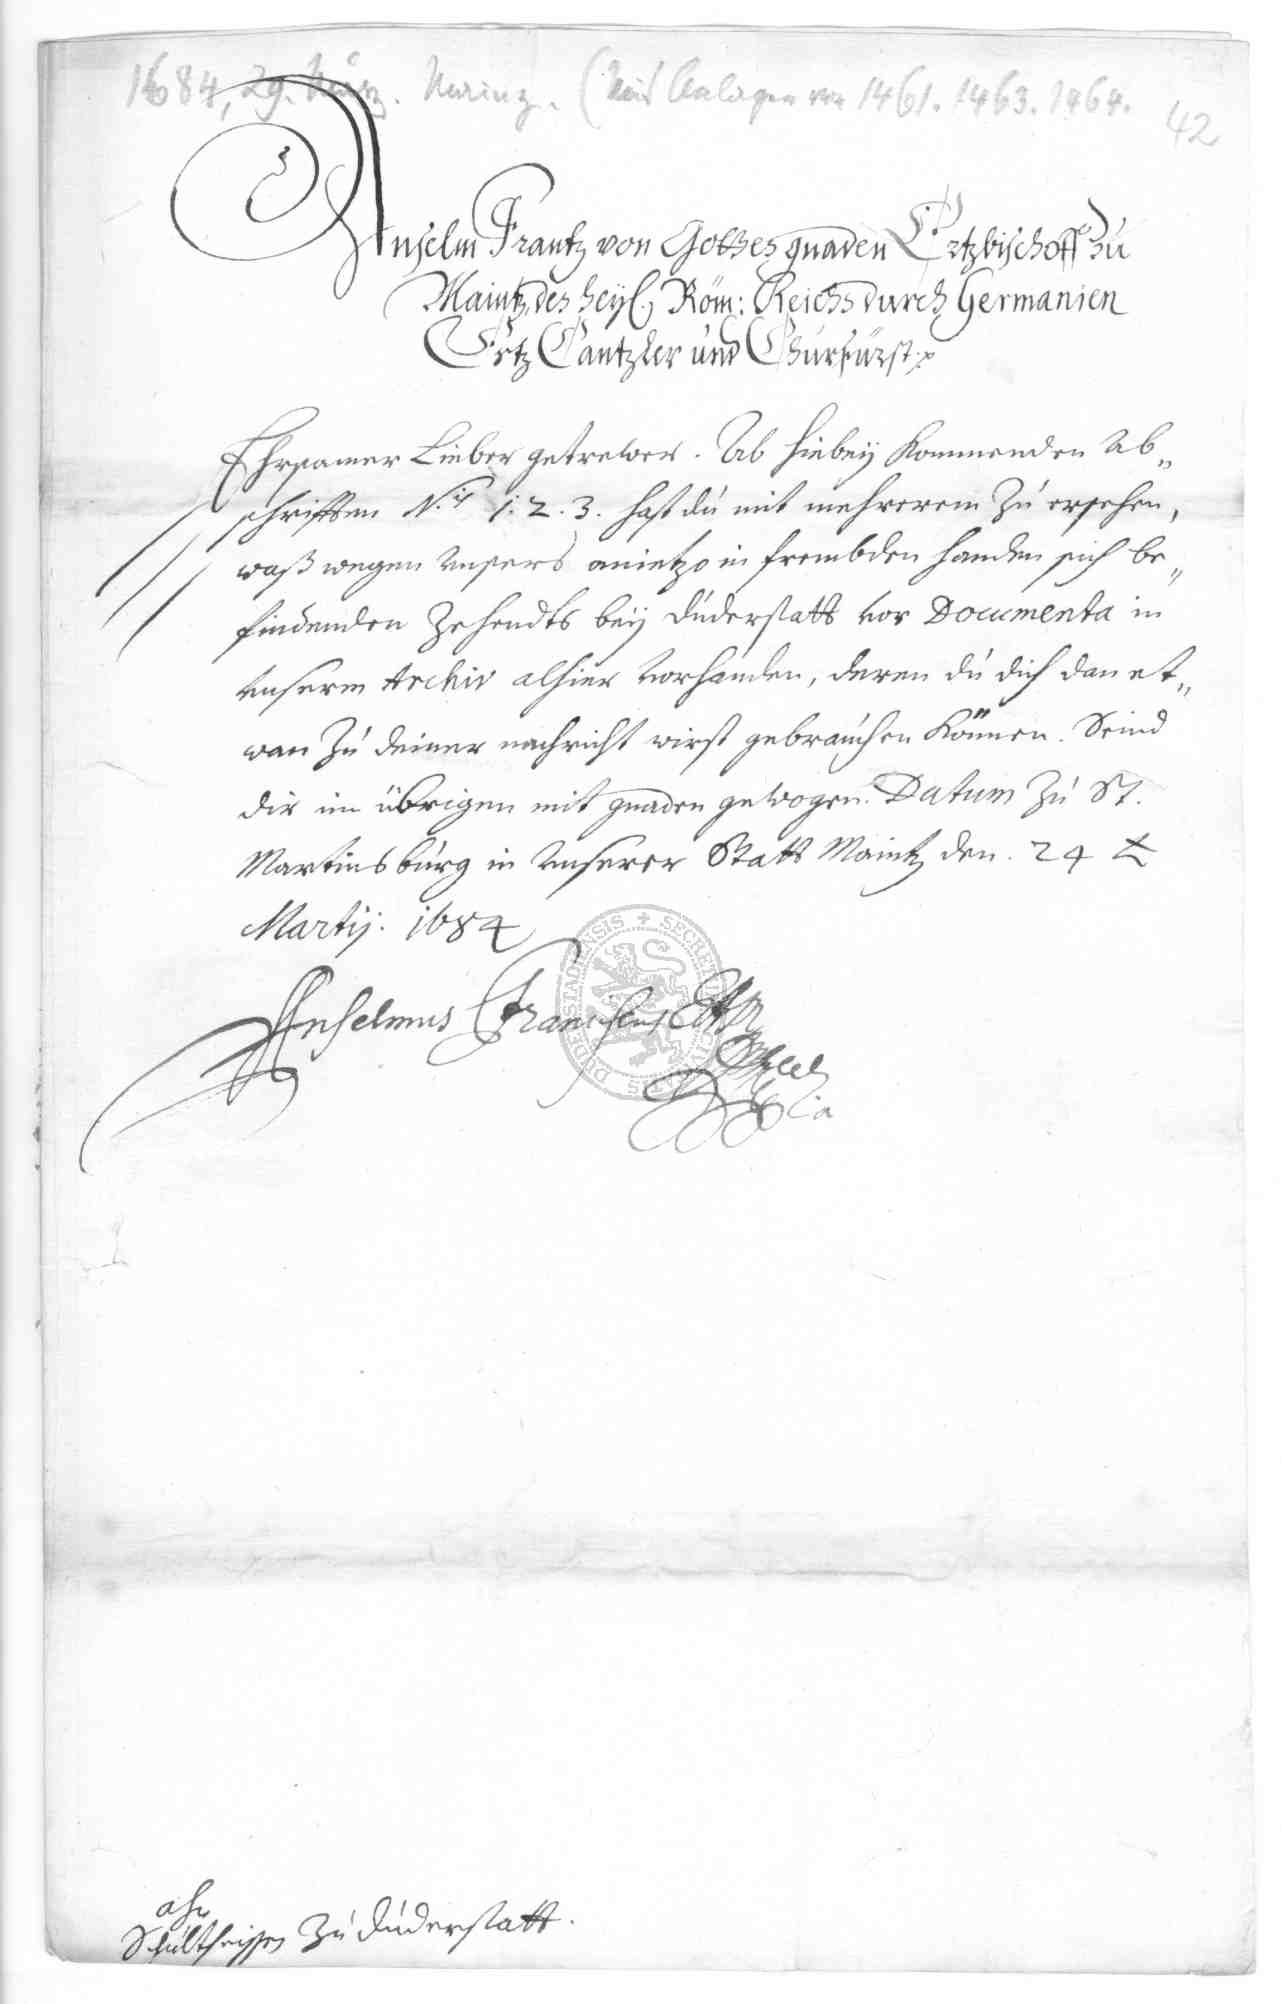 1684, 29. März. Mainz. (Mit Anlagen von 1461. 1463. 1464.
42
Anselm Frantz von Gottes gnaden Ertzbischoff zu
Maintz, des heyl. Röm: Reichs durch Germanien
Ertz Cantzler und Churfürst
Ehrsamer Lieber getrewer. Ab hiebey kommenden Ab„
schrifften N.is 1. 2. 3. hast dú mit mehrerem zú ersehen,
waß wegen unsers anietzo in frembden handen sich be„
findenden Zehendts bey dúderstatt vor Documenta in
unserm Archiv alhier vorhanden, deren dú dich dan et„
wan zú deiner nachricht wirst gebraúchen können. Seind
dir im übrigen mit gnaden gewogen. Datum zú St.
Martinsbúrg in unserer Statt Maintz den. 24 t
Martij. 1684
Anselmus Franciscus
SECRET CIVITATIS DUDERSTADENSIS
ahn
Schúltheissen zú dúderstatt.